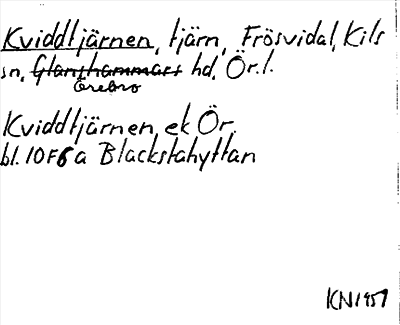 Kviddtjärnen, tjärn, Frösvidal, Kils
sn, Glanshammars hd, Ör.l.
Örebro
Kviddtjärnen, ek Ör.
bl. 10F6a Blackstahyttan
KN1957